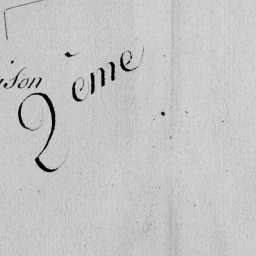 ison
2ème